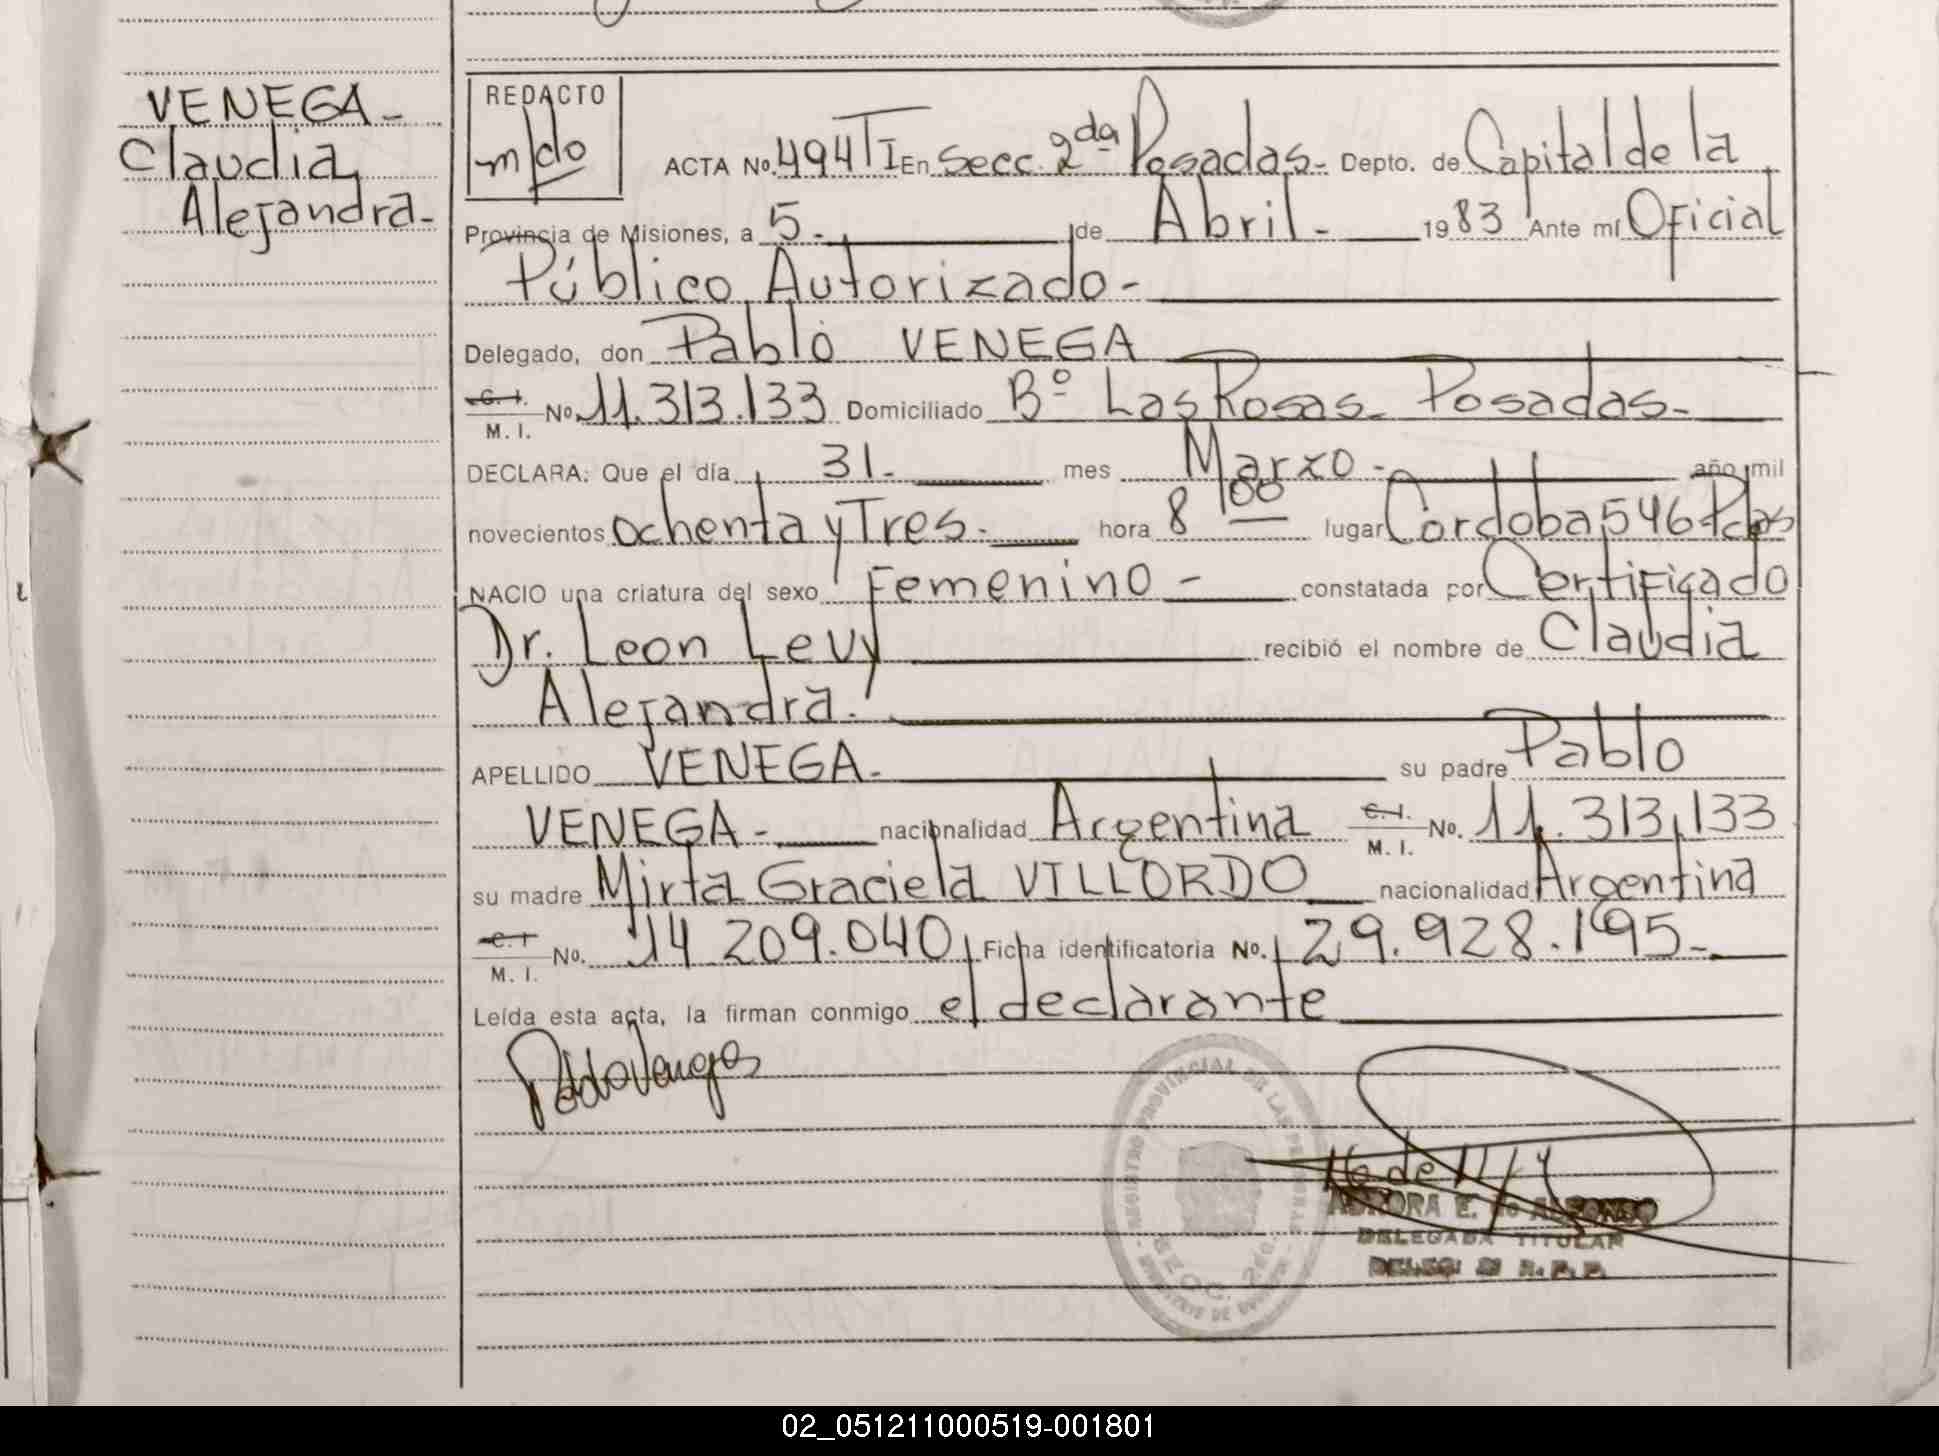 VENEGA-
Claudia
Alejandra-
REDACTO
m/do
ACTA No. 494 T I En Secc. 2da Posadas- Depto. de Capital de la
Provincia de Misiones, a 5- de Abril- 1983 Ante mí Oficial
Público Autorizado-
Delegado, don Pablo VENEGA
C. I. M. I. No. 11.313.133 Domiciliado Bº Las Rosas- Posadas-
DECLARA: Que el día 31- mes Marzo- año mil
novecientos ochenta y Tres- hora 8 00 lugar Cordoba 546 Pdas
NACIO una criatura del sexo Femenino- constatada por Certificado
Dr. Leon Levy recibió el nombre de Claudia
Alejandra.
APELLIDO VENEGA- su padre Pablo
VENEGA- nacionalidad Argentina C. I. M. I. No. 11.313.133
su madre Mirta Graciela VILLORDO nacionalidad Argentina
C. I. M. I. No. 14.209.040 Ficha identificatoria No. 29.928.195-
Leída esta acta, la firman conmigo el declarante
REGISTRO PROVINCIAL DE LAS PERSONAS
SECC. 2da.
AURORA E. de ALFONSO
DELEGADA TITULAR
DELEG. R. P. P.
02_051211000519-001801